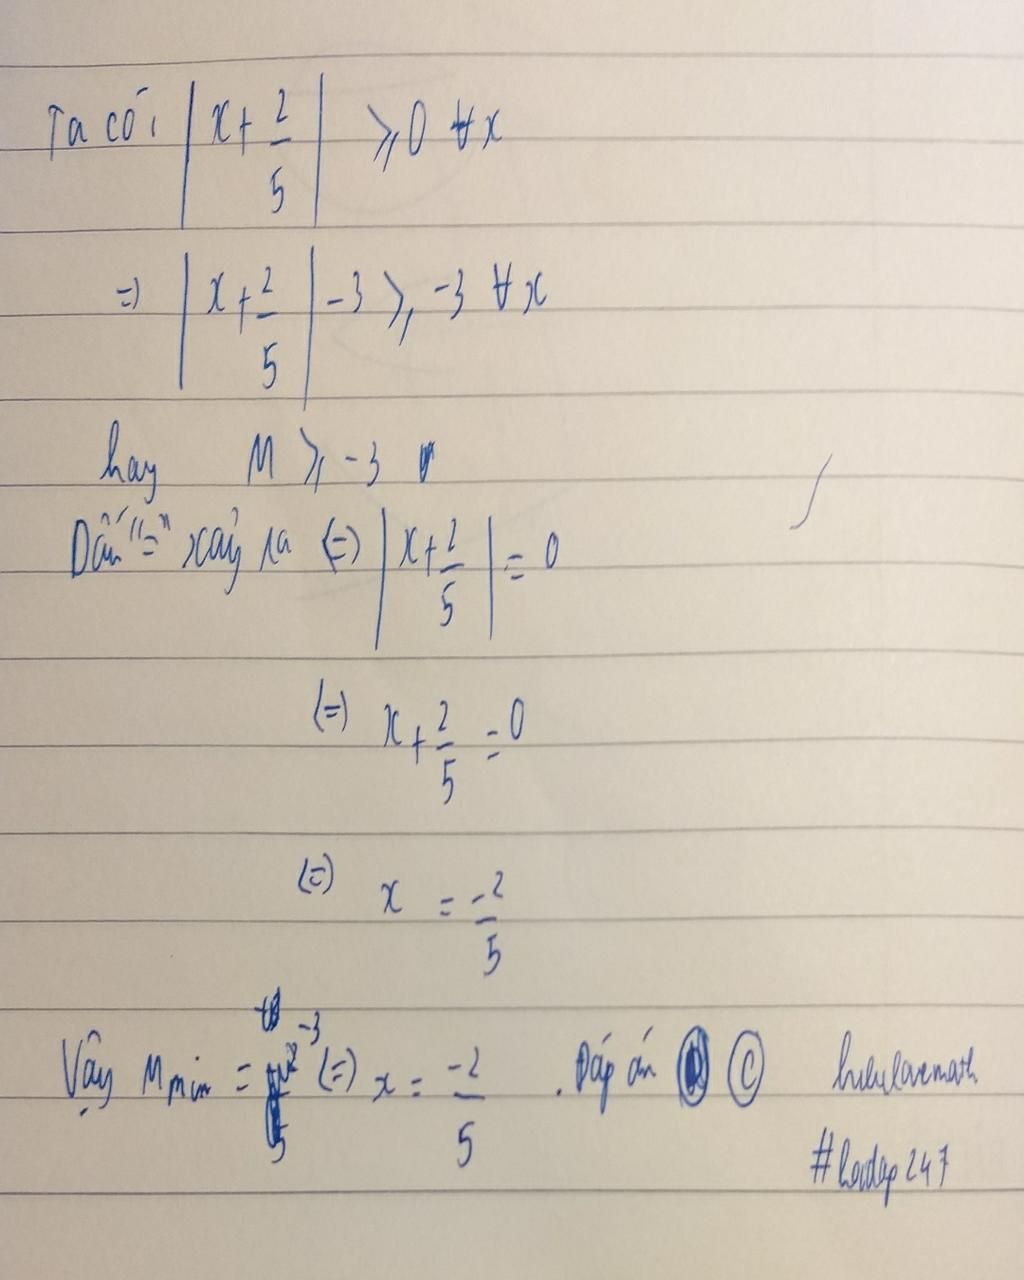 Ta có: |x + 2/5| ≥ 0 ∀x
=) |x + 2/5| - 3 ≥ -3 ∀x
hay M ≥ -3
Dấu "=" xảy ra (=) |x + 2/5| = 0
(=) x + 2/5 = 0
(=) x = -2/5
Vậy M min = -3 (=) x = -2/5 . Đáp án Ⓒ
#hoidap247